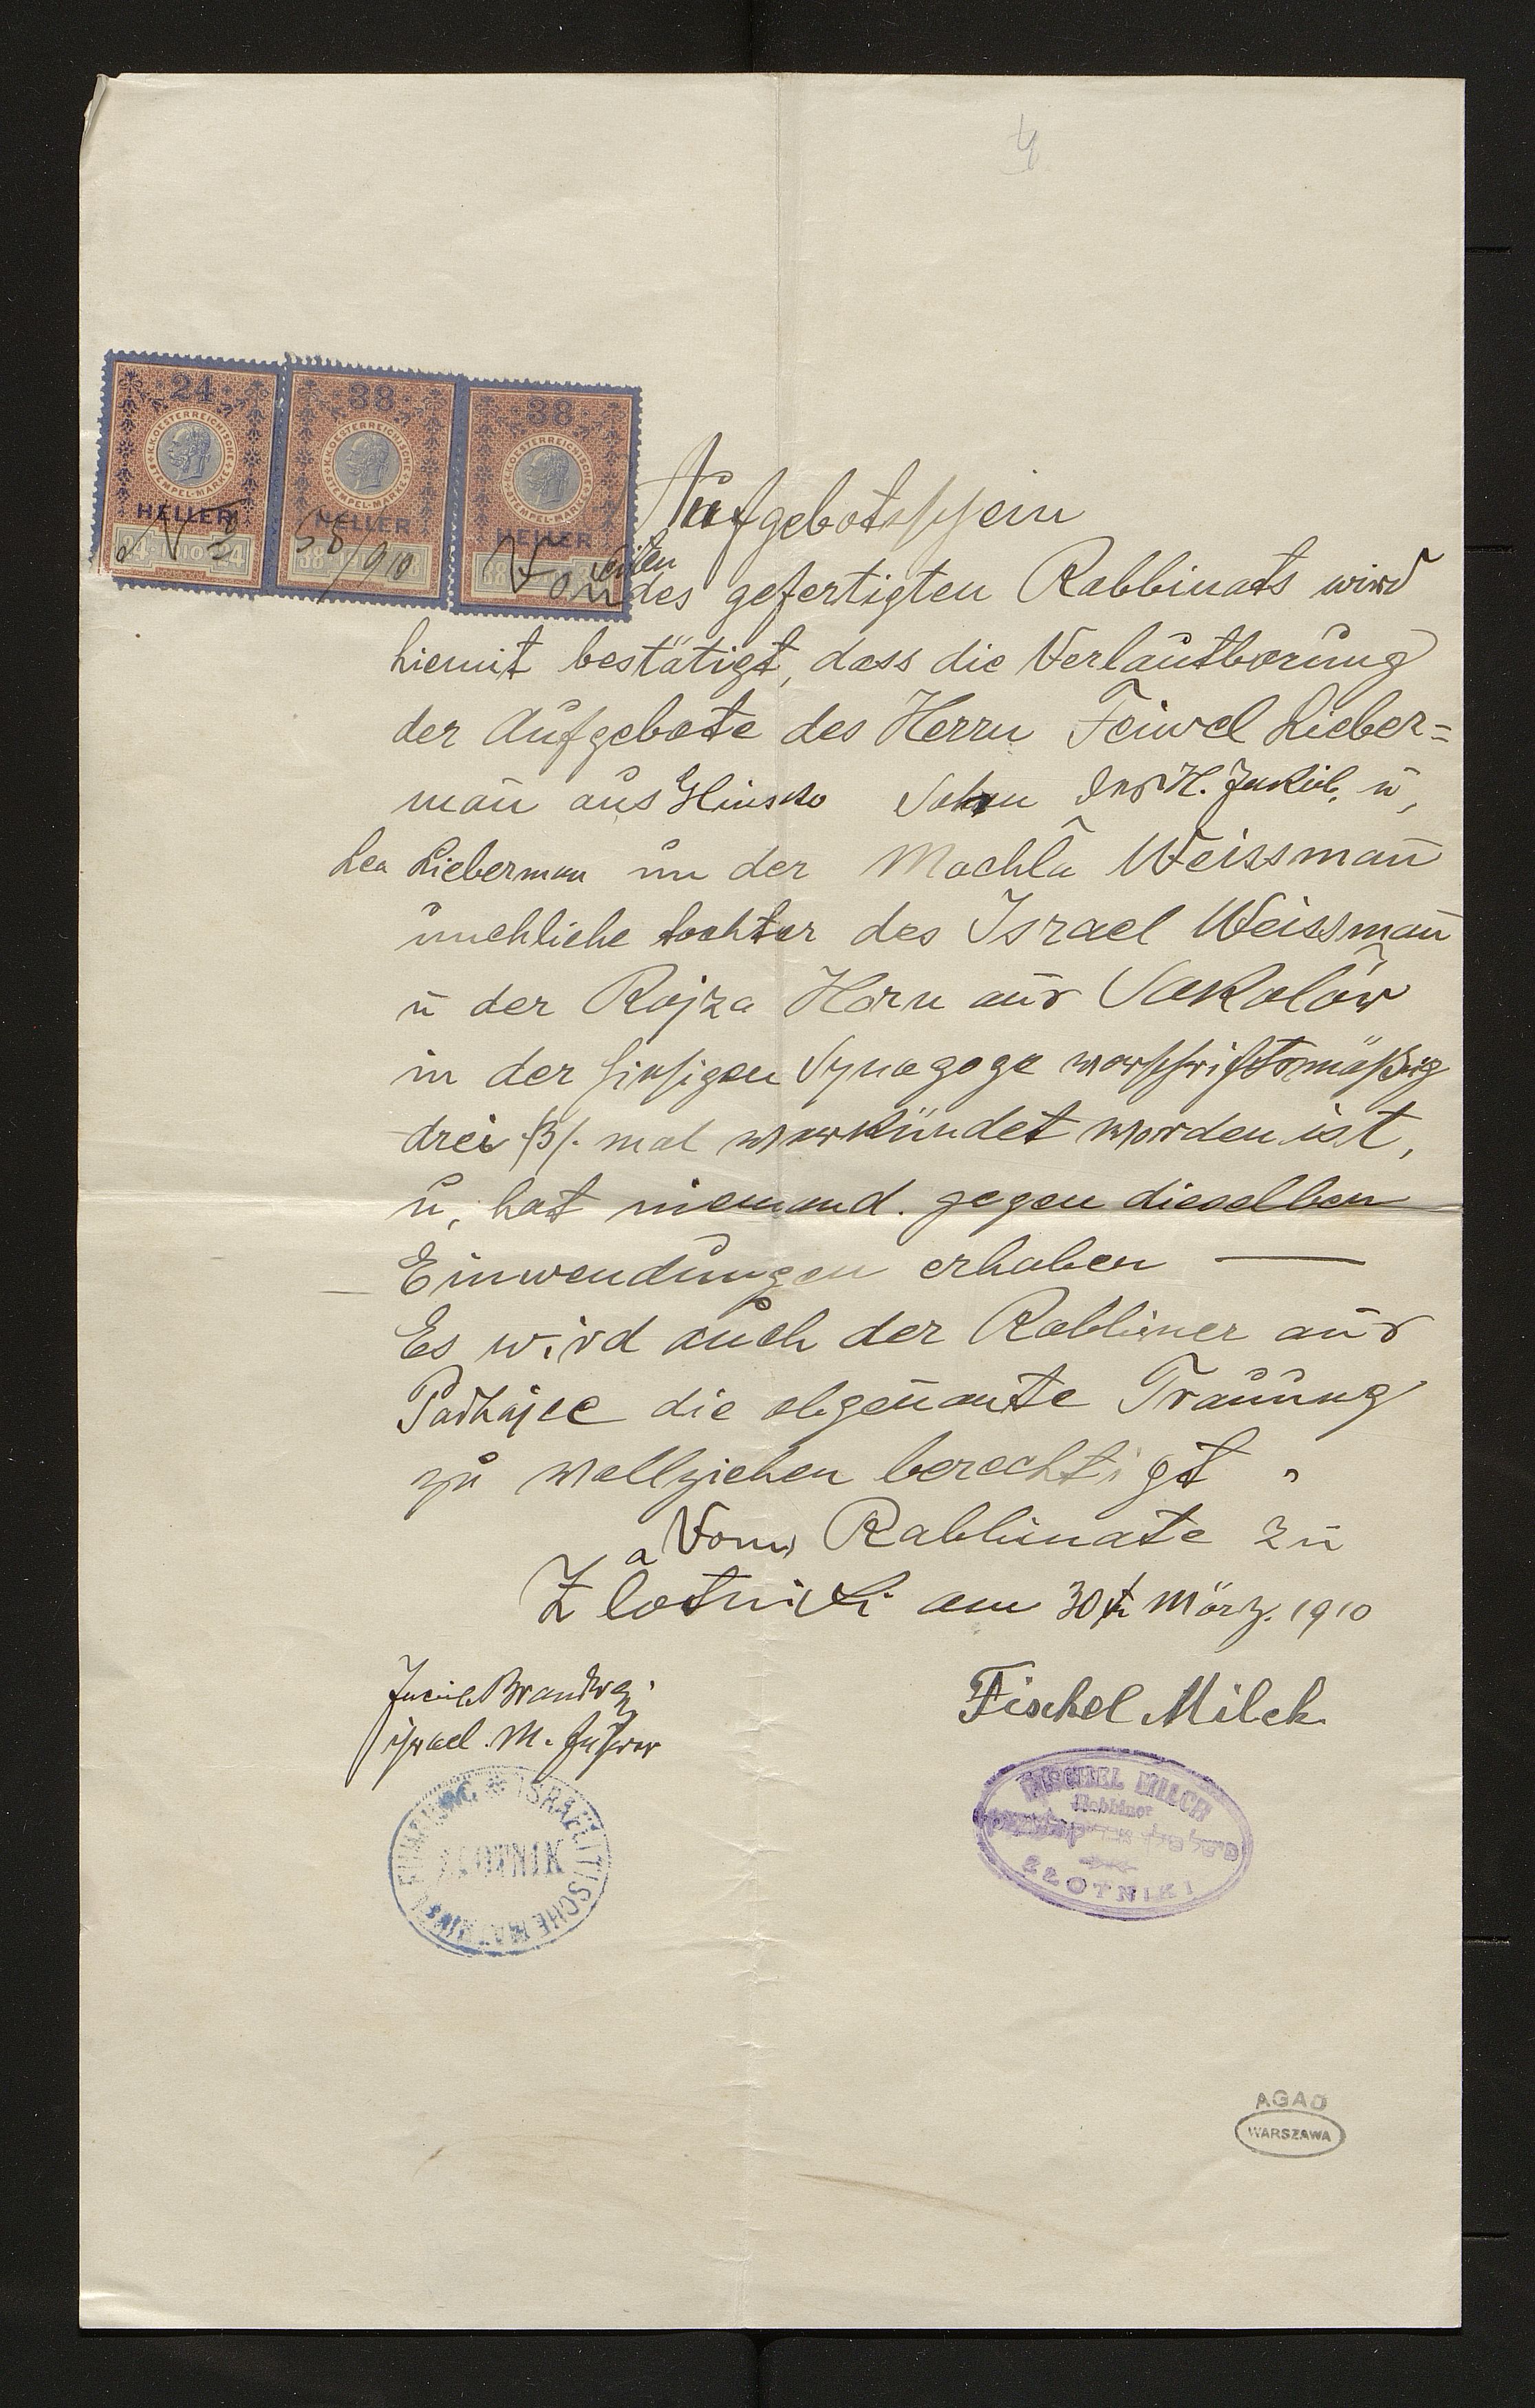 4
24 38 38
K.K. OESTERREICHISCHE STEMPEL-MARKE K.K. OESTERREICHISCHE STEMPEL-MARKE K.K. OESTERREICHISCHE STEMPEL-MARKE
HELLER HELLER HELLER
N 3 58/910
Aufgebotsschein
seiten
Von des gefertigten Rabbinats wird
hiemit bestätigt, dass die Verlautbarung
der Aufgebote des Herrn Feiwel Lieber=
man̄ aus Hinsko Sohn des H. Jakób, u,
Lea Lieberman un der Machla Weissman̄
unehliche tochter des Israel Weissman̄
u der Rojza Horn aus Sokolów
in der hiesigen Synagoge worschriftsmäßig
drei /3/. mal workündet worden ist,
u, hat niemand. gegen dieselben
Einwendungen erhaben —
Es wird auch der Rabbiner aus
Podhajce die obgen̄ante Trauung
zu wollziehen berechtigt
Vom Rabbinate zu
Zlotniki am 30 März. 1910
Fischel Milch
israel. M.
ISRAELITISCHE MATRIKEN FÜHRUNG
ZŁOTNIK
FISCHEL MILCH
Rabbiner
ZŁOTNIKI
AGAD
WARSZAWA